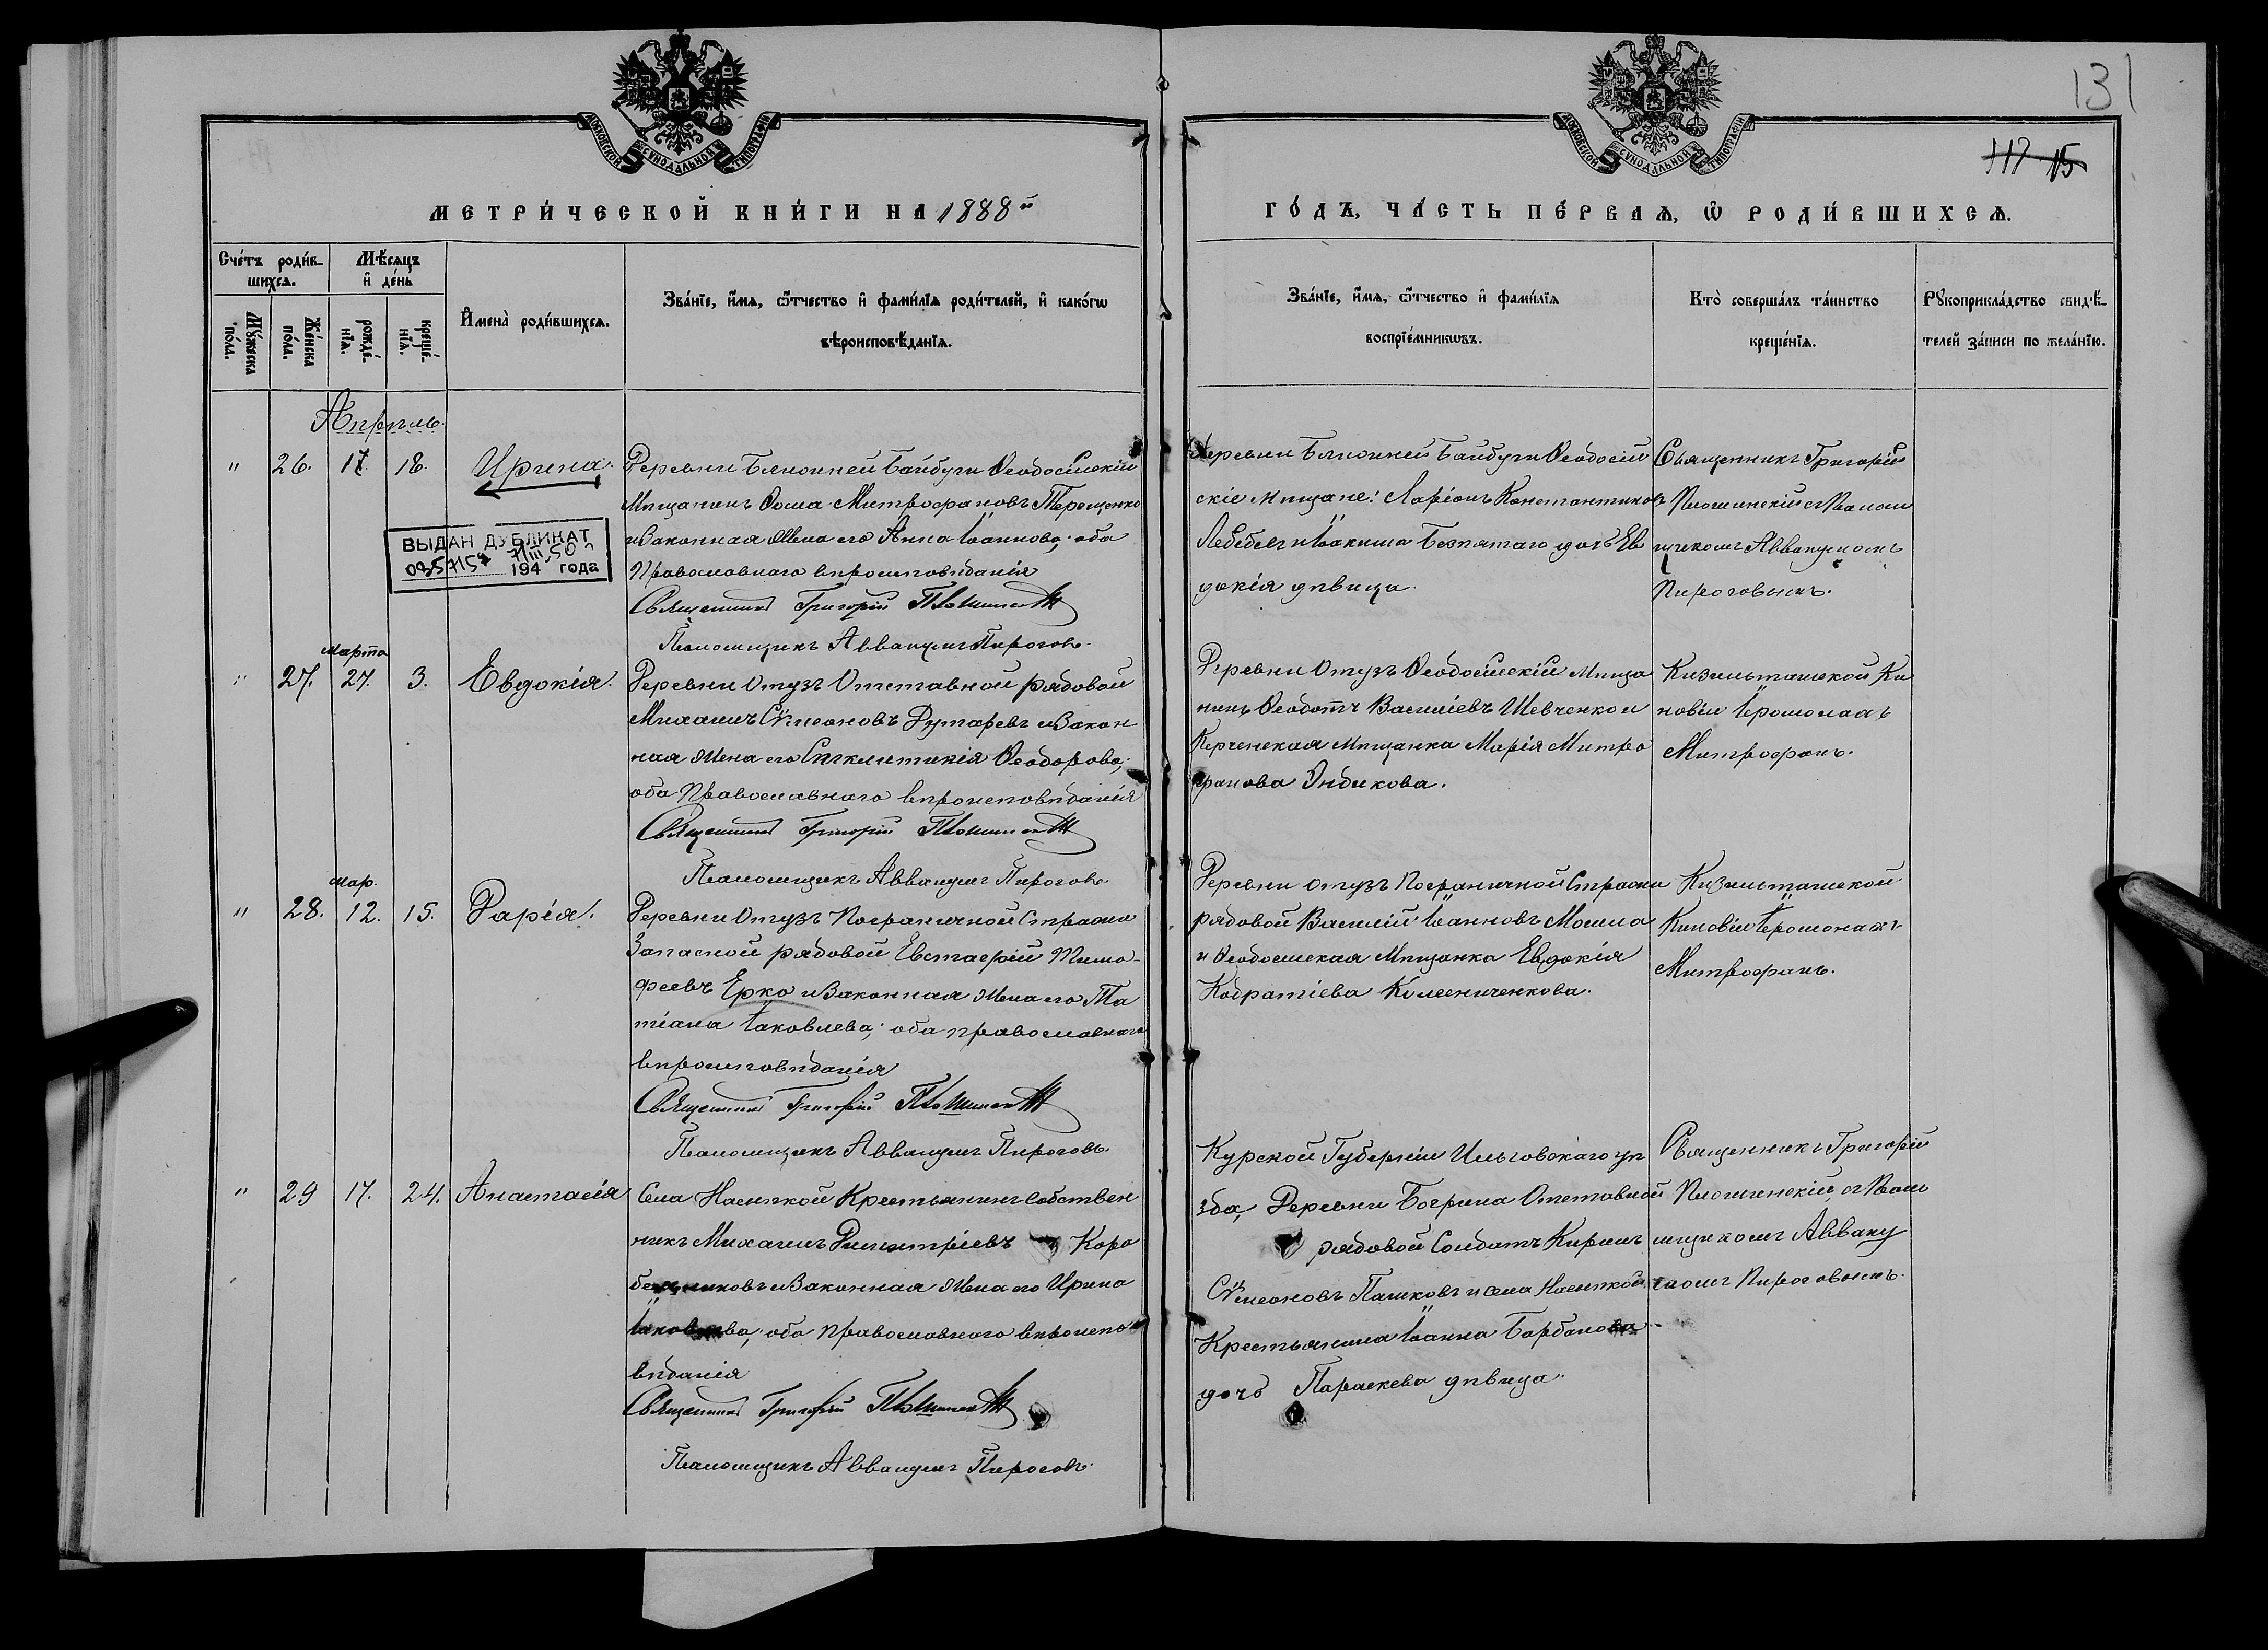 131
117 15
МОСКОВСКОЙ СѴНОДАЛЬНОЙ ТИПОГРАФІИ
МОСКОВСКОЙ СѴНОДАЛЬНОЙ ТИПОГРАФІИ
МЕТРИ́ЧЕСКОЙ КНИ́ГИ НА 1888й
ГО́ДЪ, ЧА́СТЬ ПЕ́РВАѦ, Ѡ҆ РОДИ́ВШИХСѦ.
Сче́тъ роди́в-
шихсѧ.
Мꙋ́жеска по́ла.
Же́нска по́ла.
Мѣ́сѧцъ и҆ де́нь
рожде́-нїѧ.
креще́-нїѧ.
И҆мена̀ роди́вшихсѧ.
Зва́нїе, и҆́мѧ, ѻ҆́тчество и҆ фами́лїѧ роди́телей, и҆ како́гѡ
вѣроисповѣ́данїѧ.
Зва́нїе, и҆́мѧ, ѻ҆́тчество и҆ фами́лїѧ
воспрїе́мникѡвъ.
Кто̀ соверша́лъ та́инство
креще́нїѧ.
Рꙋкоприкла́дство свидѣ́-
телей за́писи по жела́нїю.
Апрѣль.
" 26. 17. 18. Ирина.
Деревни Ближней Байбуги Ѳеодосійскій
Мѣщанинъ Ѳома Митрофановъ Терещенко
и Законная Жена его Анна Іоаннова; оба
Православнаго вѣроисповѣданія
Священникъ Григорій
Псаломщикъ Аввакумъ Пироговъ.
ВЫДАН ДУБЛИКАТ
194 года
Деревни Ближней Байбуги Ѳеодосій
скіе мѣщане: Ларіонъ Константиновъ
Лебедевъ и Іоакима Безпятаго дочь Ев
докія дѣвица.
Священникъ Григорій
съ Псалом
щикомъ Аввакумомъ
Пироговымъ.
Марта
" 27. 27. 3. Евдокія.
Деревни Отузъ Отставной рядовой
Михаилъ Сѵмеоновъ Дутаревъ и Закон
ная Жена его Сигклитикія Ѳеодорова;
оба Православнаго вѣроисповѣданія
Священникъ Григорій
Псаломщикъ Аввакумъ Пироговъ.
Деревни Отузъ Ѳеодосійскій мѣща
нинъ Ѳеодотъ Василіевъ Шевченко и
Керченская мѣщанка Марія Митро
фанова Эндикова.
Кизильташской Ки
новіи Іеромонахъ
Митрофанъ.
Мар.
" 28. 12. 15. Дарія.
Деревни Отузъ Пограничной Стражи
Запасной рядовой Евстафій Тимо-
феевъ Ерко и Законная Жена его Та
тіана Іаковлева; оба православнаго
вѣроисповѣданія
Священникъ Григорій
Псаломщикъ Аввакумъ Пироговъ
Деревни Отузъ Пограничной Стражи
рядовой Василій Іоанновъ Мошла
и Ѳеодосійская Мѣщанка Евдокія
Кодратіева Колесниченкова.
Кизильташской
Киновіи Іеромонахъ
Митрофанъ.
" 29 17. 24. Анастасія
Села Насыпкой Крестьянинъ собствен
никъ Михаилъ Димитріевъ Коро
бейниковъ и Законная Жена его Ирина
Іаковлева; оба православнаго вѣроиспо
вѣданія
Священникъ Григорій
Псаломщикъ Аввакумъ Пироговъ.
Курской Губерніи Льговскаго уѣ
зда, Деревни Отставной
рядовой Солдатъ Кирилъ
Сѵмеоновъ Пашковъ и села Насыпкой
Крестьянина Іоанна Барбанова
дочь Параскева дѣвица.
Священникъ Григорій
съ Псалом
щикомъ Авваку
момъ Пироговымъ.